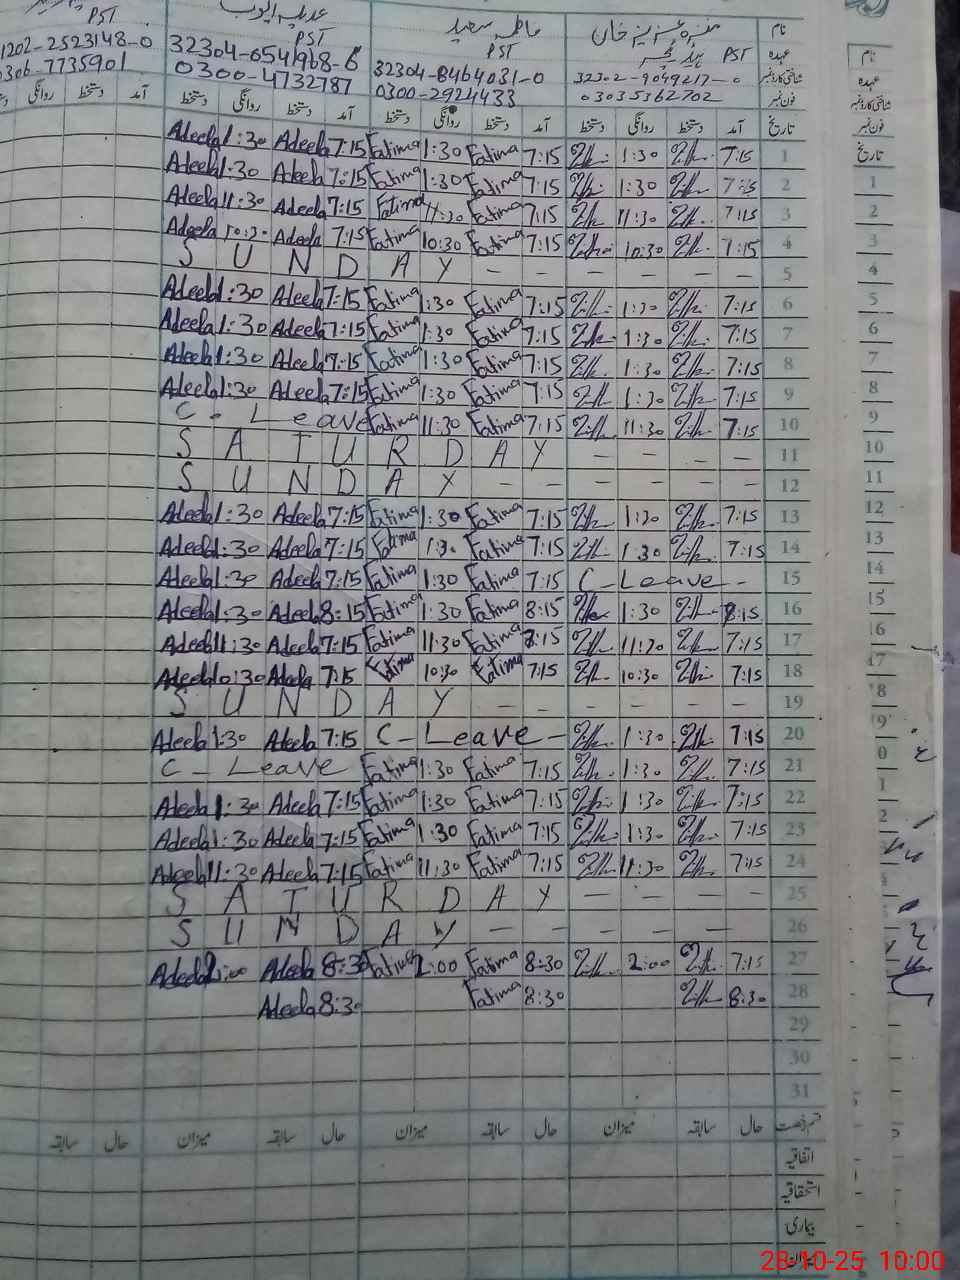 نام منیزہ عزیز خان فاطمہ سعید عدیلہ ایوب
عہدہ PST ہیڈ ٹیچر PST PST PST
شناختی کارڈ نمبر 32302-9049217-0 32304-8464031-0 32304-6541968-6 1202-2523148-0
فون نمبر 03035362702 0300-2924433 0300-4732787 0306-7735901
تاریخ آمد دستخط روانگی دستخط آمد دستخط روانگی دستخط آمد دستخط روانگی دستخط آمد دستخط روانگی
Adeela 1:30 Adeela 7:15 Fatima 1:30 Fatima 7:15 1:30 7:15 1
Adeela 1:30 Adeela 7:15 Fatima 1:30 Fatima 7:15 1:30 7:15 2
Adeela 11:30 Adeela 7:15 Fatima 11:30 Fatima 7:15 11:30 7:15 3
Adeela 10:30 Adeela 7:15 Fatima 10:30 Fatima 7:15 10:30 7:15 4
S U N D A Y - - - - - - 5
Adeela 1:30 Adeela 7:15 Fatima 1:30 Fatima 7:15 1:30 7:15 6
Adeela 1:30 Adeela 7:15 Fatima 1:30 Fatima 7:15 1:30 7:15 7
Adeela 1:30 Adeela 7:15 Fatima 1:30 Fatima 7:15 1:30 7:15 8
Adeela 1:30 Adeela 7:15 Fatima 1:30 Fatima 7:15 1:30 7:15 9
C - Leave Fatima 11:30 Fatima 7:15 11:30 7:15 10
S A T U R D A Y - - - - 11
S U N D A Y - - - - - - 12
Adeela 1:30 Adeela 7:15 Fatima 1:30 Fatima 7:15 1:30 7:15 13
Adeela 1:30 Adeela 7:15 Fatima 1:30 Fatima 7:15 1:30 7:15 14
Adeela 1:30 Adeela 7:15 Fatima 1:30 Fatima 7:15 C-Leave - 15
Adeela 1:30 Adeela 8:15 Fatima 1:30 Fatima 8:15 1:30 8:15 16
Adeela 11:30 Adeela 7:15 Fatima 11:30 Fatima 7:15 11:30 7:15 17
Adeela 10:30 Adeela 7:15 Fatima 10:30 Fatima 7:15 10:30 7:15 18
S U N D A Y - - - - - - 19
Adeela 1:30 Adeela 7:15 C-Leave - 1:30 7:15 20
C-Leave Fatima 1:30 Fatima 7:15 1:30 7:15 21
Adeela 1:30 Adeela 7:15 Fatima 1:30 Fatima 7:15 1:30 7:15 22
Adeela 1:30 Adeela 7:15 Fatima 1:30 Fatima 7:15 1:30 7:15 23
Adeela 11:30 Adeela 7:15 Fatima 11:30 Fatima 7:15 11:30 7:15 24
S A T U R D A Y - - - - 25
S U N D A Y - - - - - 26
Adeela 2:00 Adeela 8:30 Fatima 2:00 Fatima 8-30 2:00 7:15 27
Adeela 8:30 Fatima 8:30 8:30 28
29
30
31
حال سابقہ میزان حال سابقہ میزان حال سابقہ میزان حال سابقہ
اتفاقیہ
استحقاقیہ
بیماری
میزان
نام
عہدہ
شناختی کارڈ نمبر
فون نمبر
تاریخ
1
2
3
4
5
6
7
8
9
10
11
12
13
14
15
16
17
28-10-25 10:00